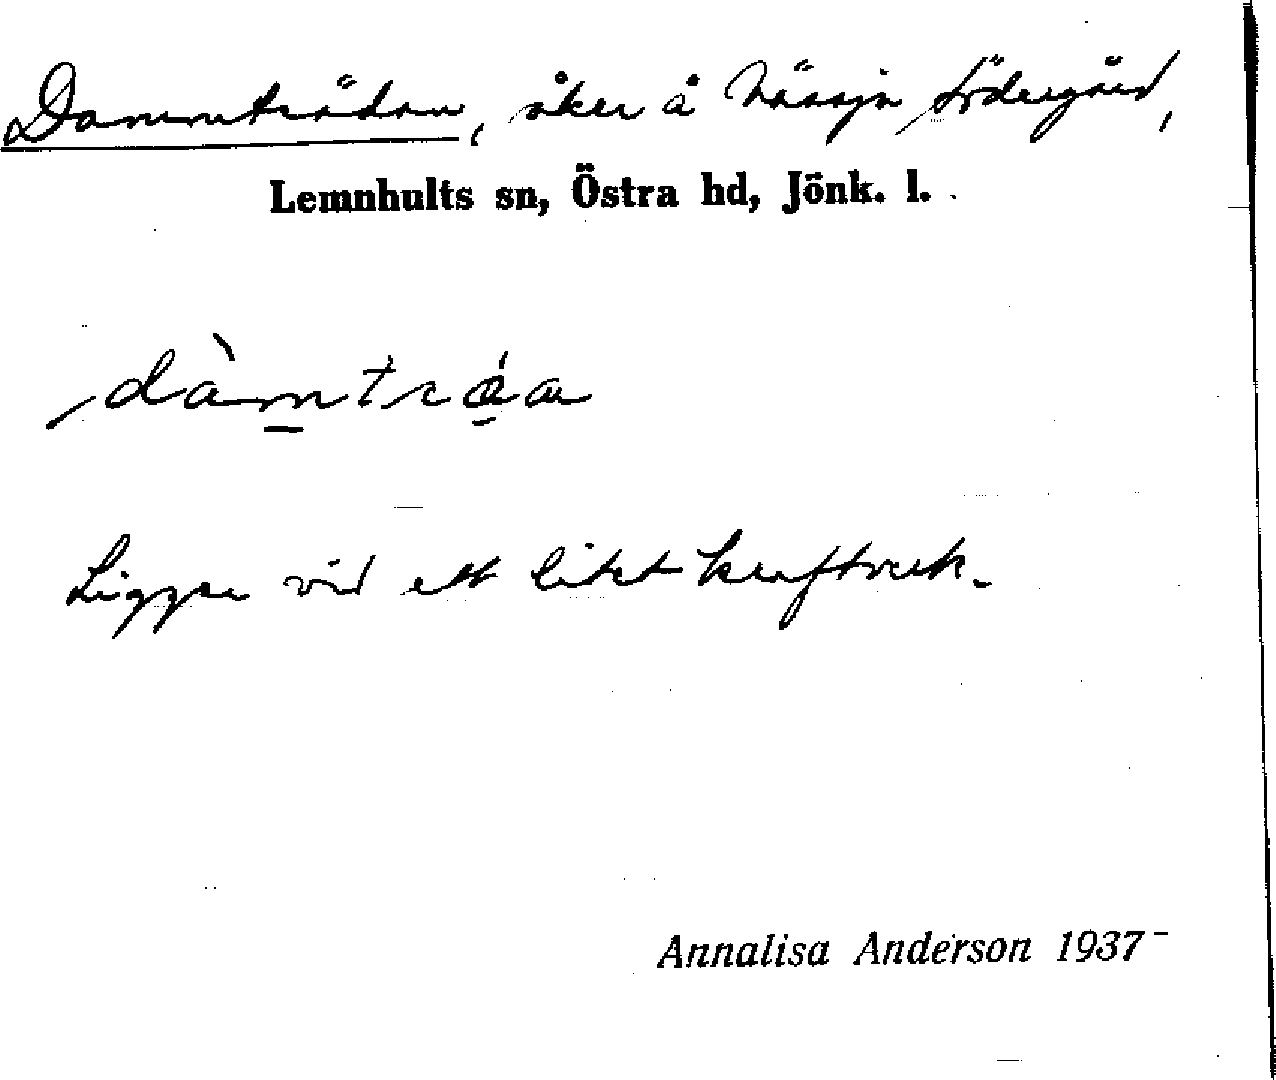 Dammträdan, åker å Nässja Södergård,
Lemnhults sn, Östra hd, Jönk. l.
Ligger vid ett litet kraftverk.
Annalisa Anderson 1937